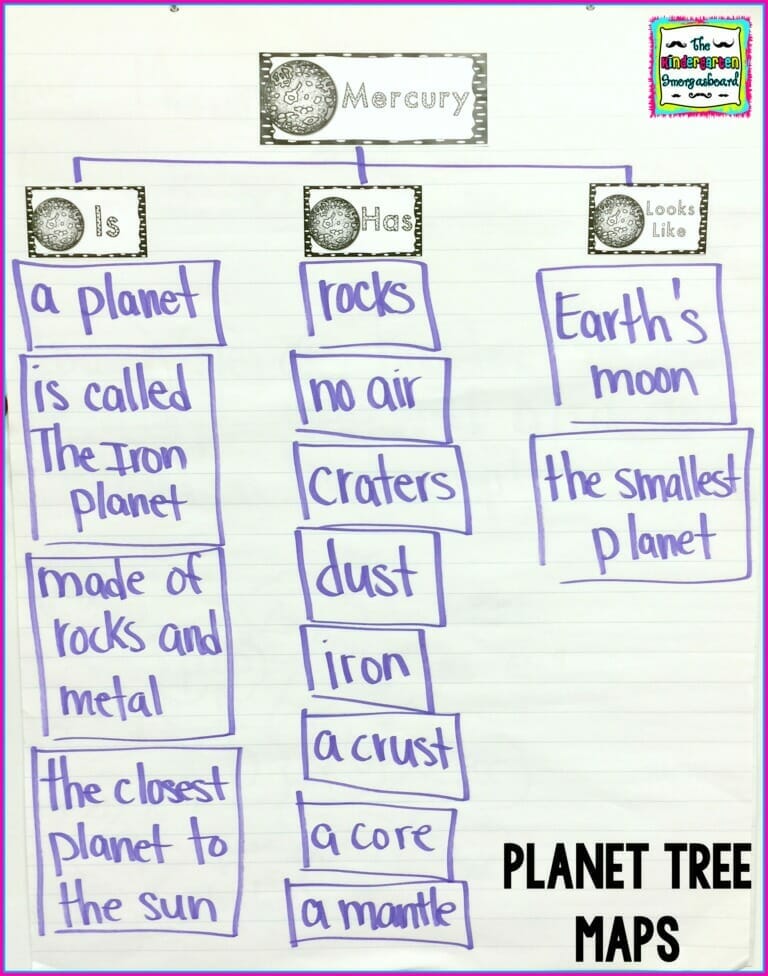 The
Kindergarten
Smorgasboard
Mercury
Is
a planet
is called
The Iron
planet
made of
rocks and
metal
the closest
planet to
the sun
Has
rocks
no air
craters
dust
iron
a crust
a core
a mantle
Looks
Like
Earth's
moon
the smallest
planet
PLANET TREE
MAPS